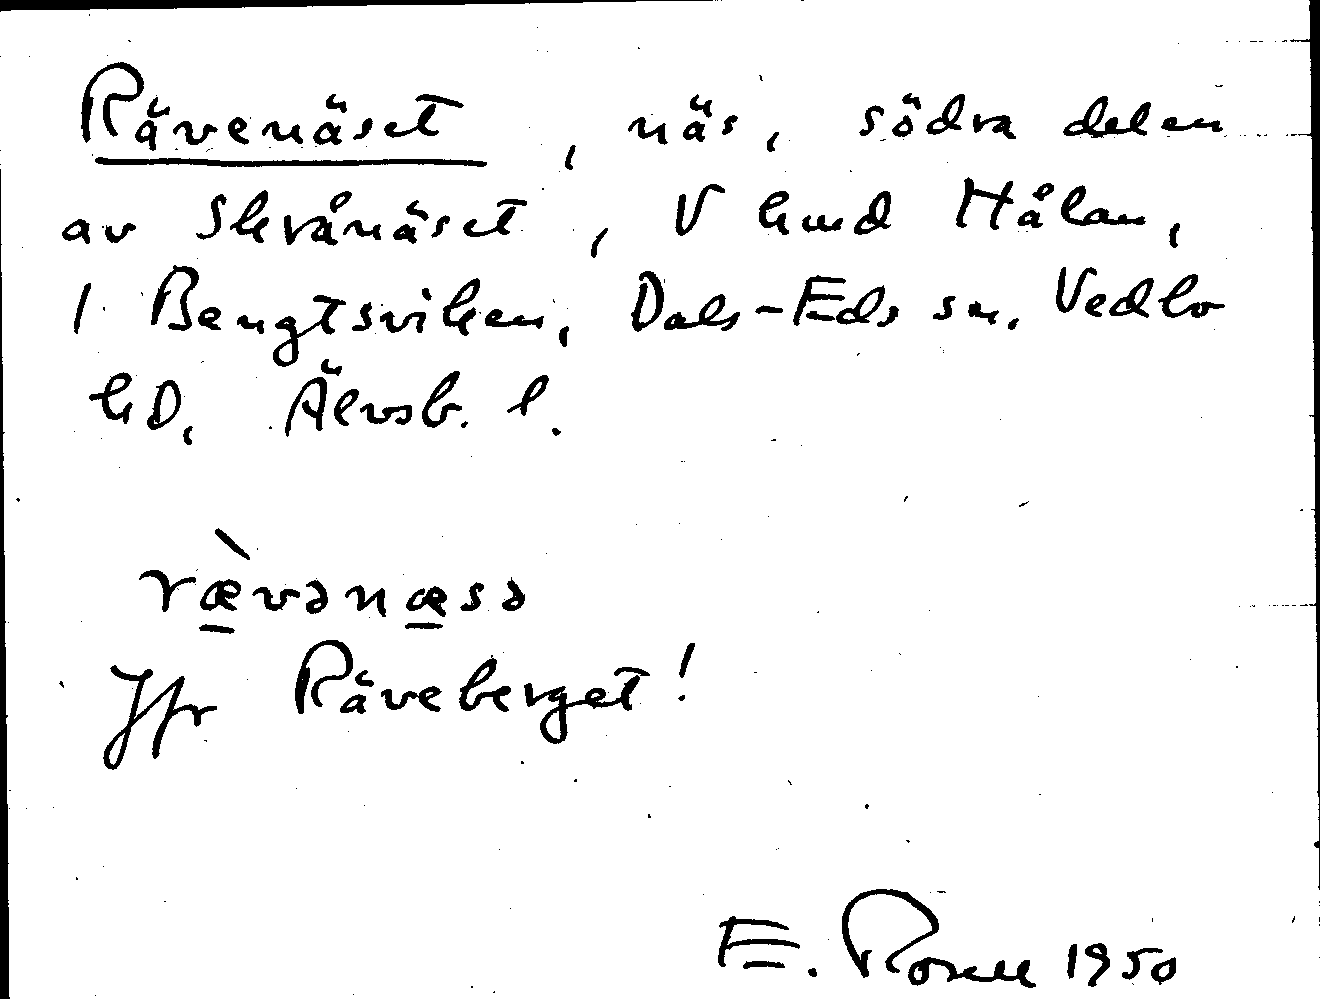 Rävenäset, näs, södra delen
av Skrånäset, V kund Hålan,
1 Bengtsviken, Dals-Eds sn. Vedbo
hD, Älvsb. l.
ræ̀vənæsə
Jfr Räveberget!
E. 1950